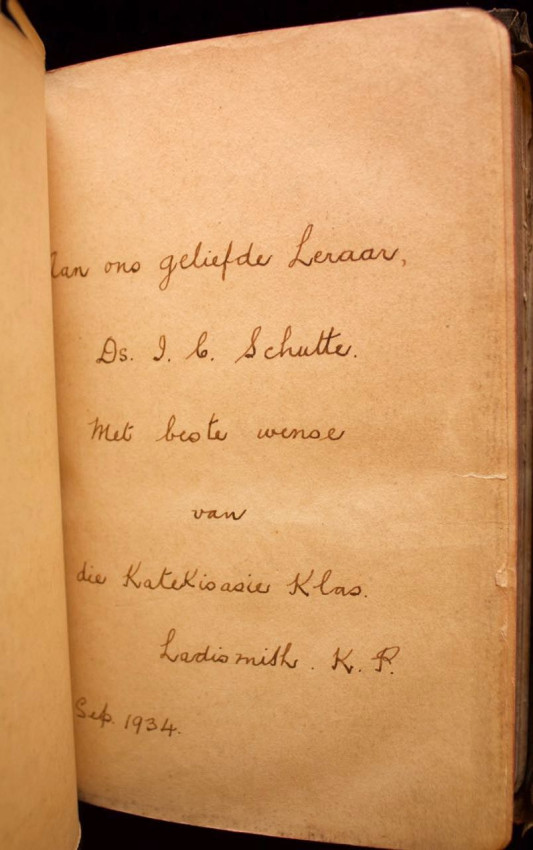 Aan ons geliefde Leraar,
Ds. I. C. Schutte.
Met beste wense
van
die Katekisasie Klas.
Ladismith. K. P.
Sep. 1934.